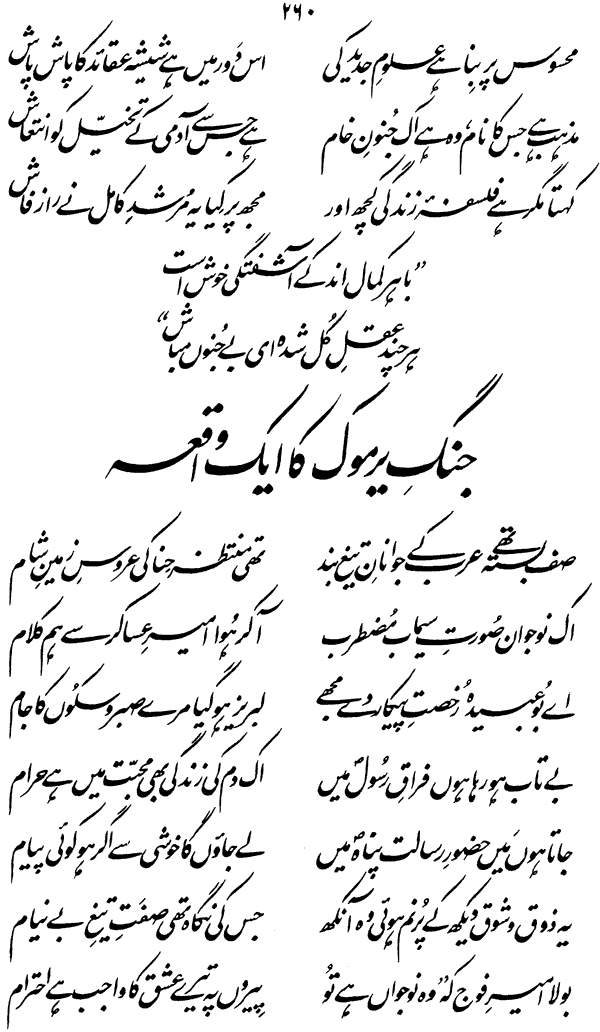 ۲۶۰
محسوس پر بِنا ہے علومِ جدید کی اس دَور میں ہے شیشہ عقائد کا پاش پاش
مذہب ہے جس کا نام، وہ ہے اک جُنونِ خام ہے جس سے آدمی کے تخیّل کو انتعاش
کہتا مگر ہے فلسفۂ زندگی کچھ اور مجھ پر کِیا یہ مُرشدِ کامل نے راز فاش
”با ہر کمال اندکے آشفتگی خوش است
ہر چند عقلِ کُل شدہ ای بے جُنوں مباش“
جنگِ یرموک کا ایک واقعہ
صف بستہ تھے عرب کے جوانانِ تیغ بند تھی منتظر حِنا کی عروسِ زمینِ شام
اک نوجوان صُورتِ سیماب مُضطرب آ کر ہُوا امیرِ عساکر سے ہم کلام
اے بُوعبیدہ رُخصتِ پیکار دے مجھے لبریز ہو گیا مرے صبر و سکُوں کا جام
بے تاب ہو رہا ہوں فراقِ رسُولؐ میں اک دم کی زندگی بھی محبت میں ہے حرام
جاتا ہوں مَیں حضورِ رسالت پناہؐ میں لے جاؤں گا خوشی سے اگر ہو کوئی پیام
یہ ذوق و شوق دیکھ کے پُرنم ہوئی وہ آنکھ جس کی نگاہ تھی صفَتِ تیغِ بے نیام
بولا امیرِ فوج کہ ”وہ نوجواں ہے تُو پِیروں پہ تیرے عشق کا واجب ہے احترام